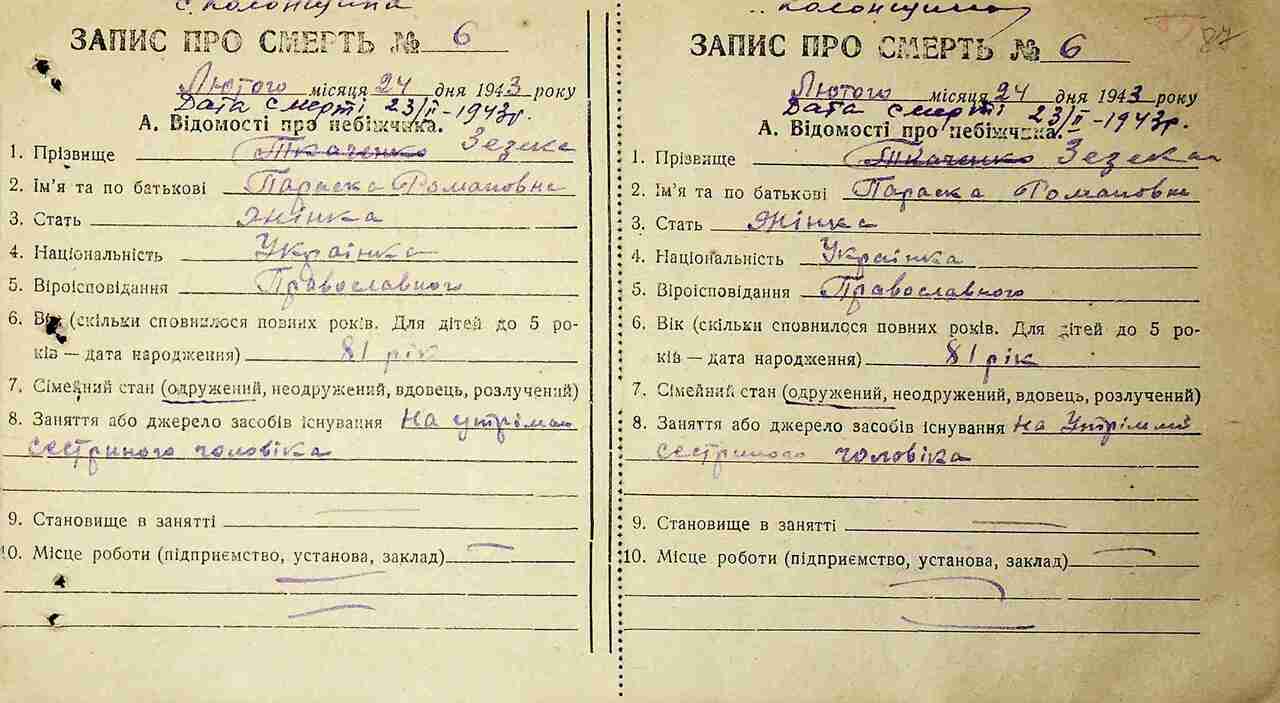 с. Колонщина
ЗАПИС ПРО СМЕРТЬ № 6
Лютого місяця 24 дня 1943 року
Дата смерті 23/II-1943р.
А. Відомості про небіжчика.
1. Прізвище Ткаченко Зезека
2. Ім'я та по батькові Параска Романовна
3. Стать жінка
4. Національність Українка
5. Віроісповідання Православного
6. Вік (скільки сповнилося повних років. Для дітей до 5 ро-
ків — дата народження) 81 рік
7. Сімейний стан (одружений, неодружений, вдовець, розлучений)
8. Заняття або джерело засобів існування На утріман
сестриного чоловіка
9. Становище в занятті
10. Місце роботи (підприємство, установа, заклад)
с. Колонщина
87
ЗАПИС ПРО СМЕРТЬ № 6
Лютого місяця 24 дня 1943 року
Дата смерті 23/II-1943р.
А. Відомості про небіжчика.
1. Прізвище Ткаченко Зезека
2. Ім'я та по батькові Параска Романовна
3. Стать жінка
4. Національність Українка
5. Віроісповідання Православного
6. Вік (скільки сповнилося повних років. Для дітей до 5 ро-
ків — дата народження) 81 рік
7. Сімейний стан (одружений, неодружений, вдовець, розлучений)
8. Заняття або джерело засобів існування На
сестриного чоловіка
9. Становище в занятті
10. Місце роботи (підприємство, установа, заклад)